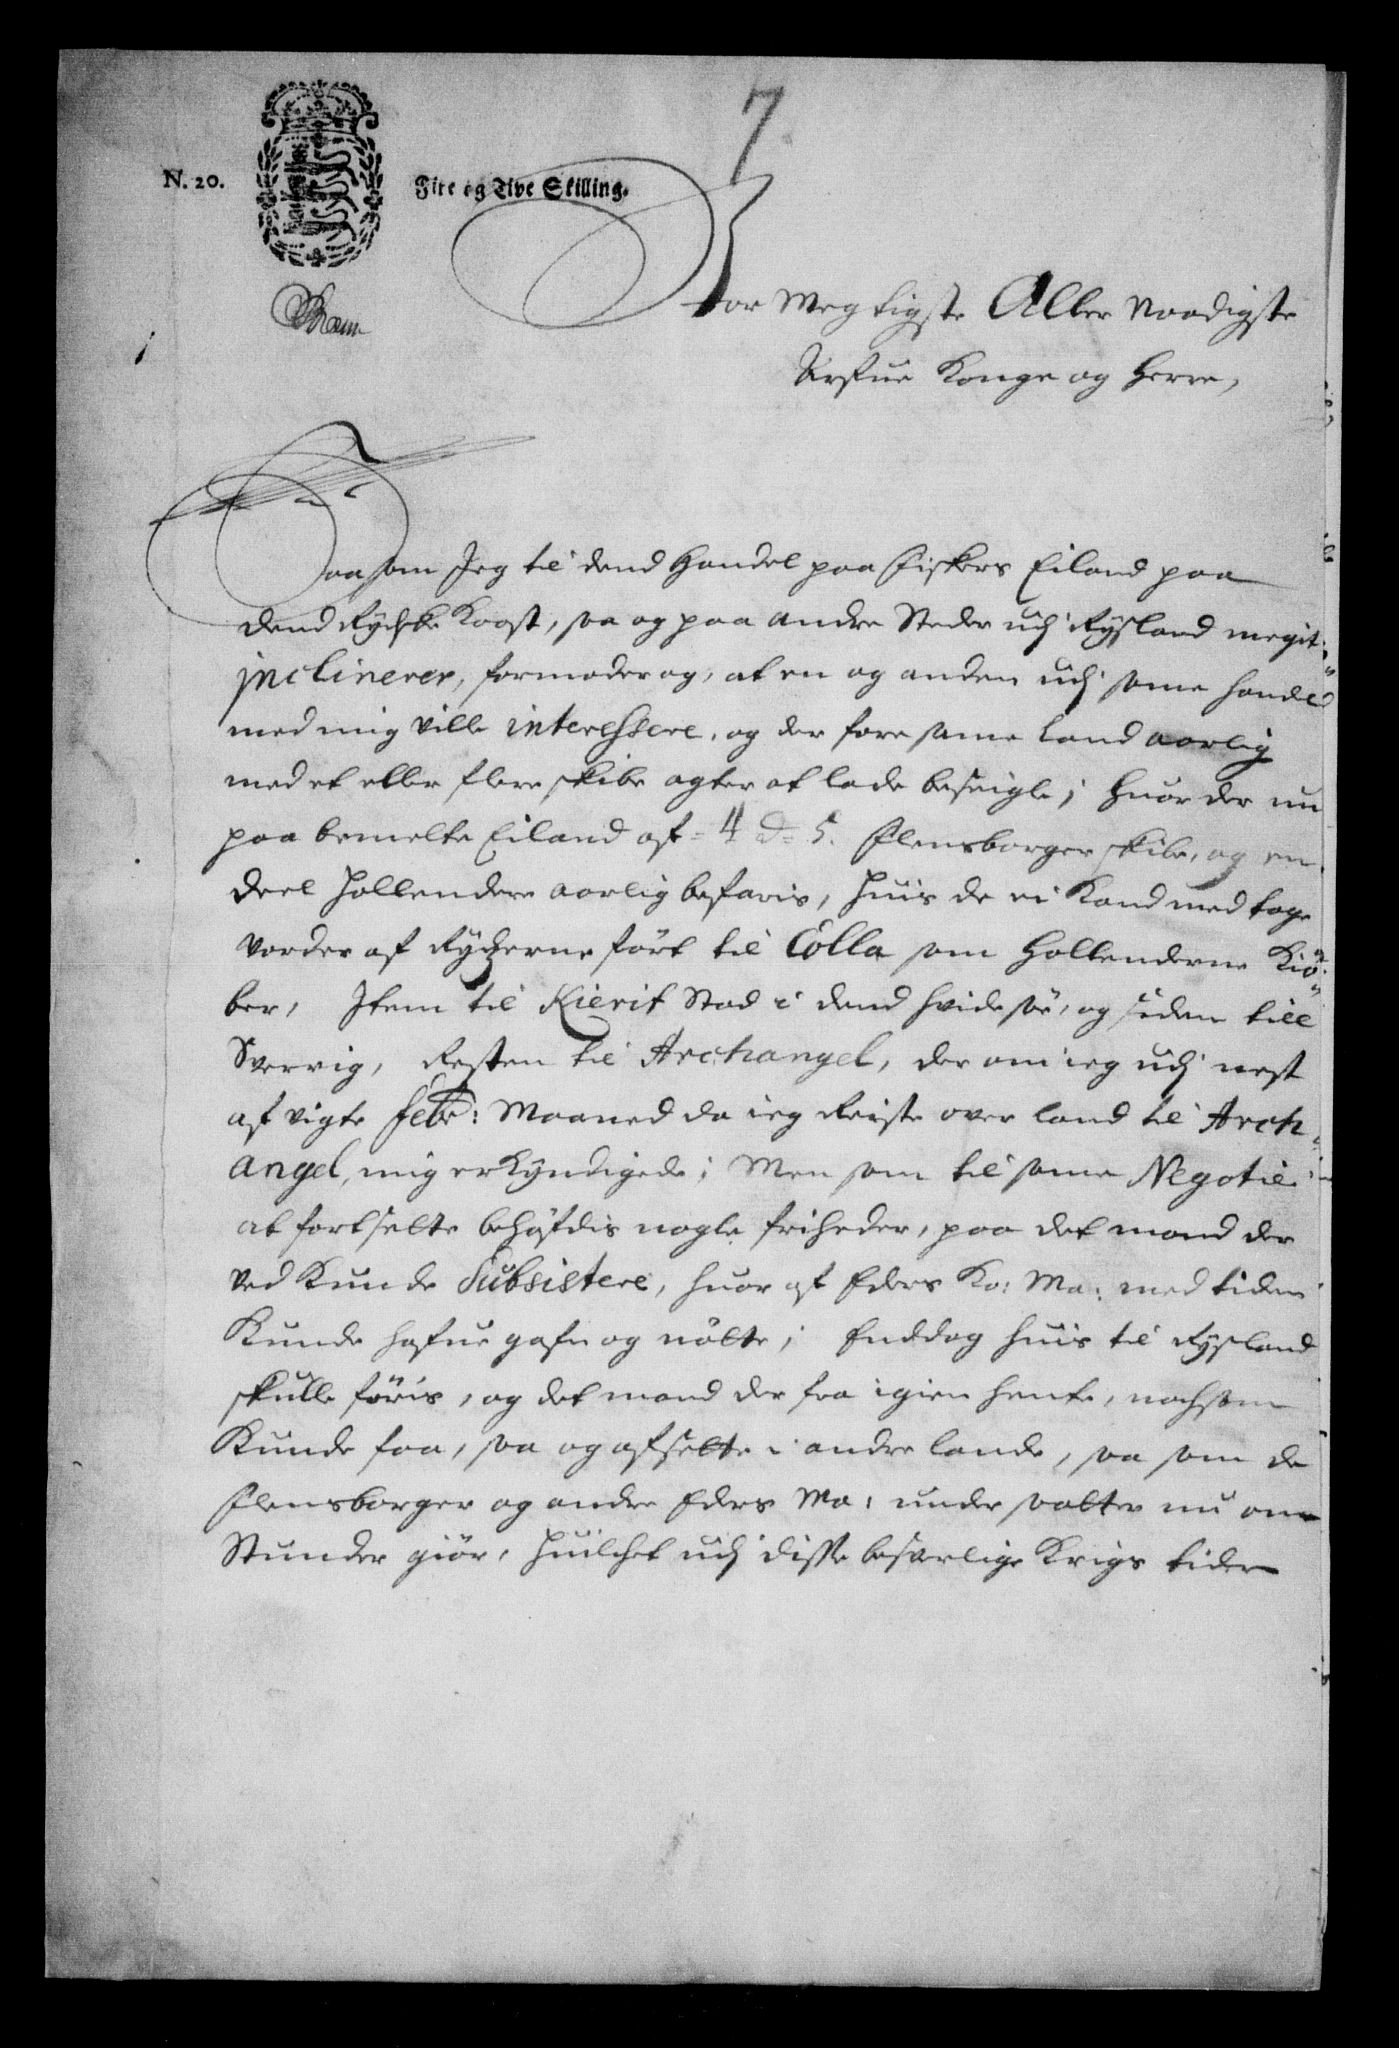 7
N. 20.
Fire og Tive Skilling.
Stor Megtigste Aller Naadigste
Arfue Konge og Herre,
Saasom Jeg til dend Handel paa Fiskers Eiland paa
dend Rydske Koost, saa og paa andre Steder udj Rysland megit
inclinerer, formoder og, at en og anden udj same handel
med mig ville interessere, og der fore same land aarlig
med et eller flere skibe agter at lade beseigle; Huor der nu
paa bemelte Eiland af 4 a 5. Flensborger skibe, og en
deel Hollendere aarlig befaris, Huis de ei Kand med tage
vorder af Rydzerne fört til Colla som Hollenderne Kiö-
ber, Item til Kierit Stad i dend hvide söe, og siden till
Sverrig, Resten til Archangel, der om ieg udj nest
afvigte Febr: Maaned da ieg Reiste over land til Arch
angel, mig erkyndigede; Men som til same Negotie
at fortsette behöfdis nogle friheder, paa det mand der
ved Kunde Subsistere, huor af Eders Ko: Ma: med tiden
Kunde hafue gafn og nötte; Enddog huis til Rysland
skulle föris, og det mand der fra igien hente, nochsom
Kunde faa, saa og afsette i andre lande, saa som de
Flensborger og andre Eders Ma: undersaatter nu om
Stunder giör, Huilchet udj disse besverlige Krigs tider